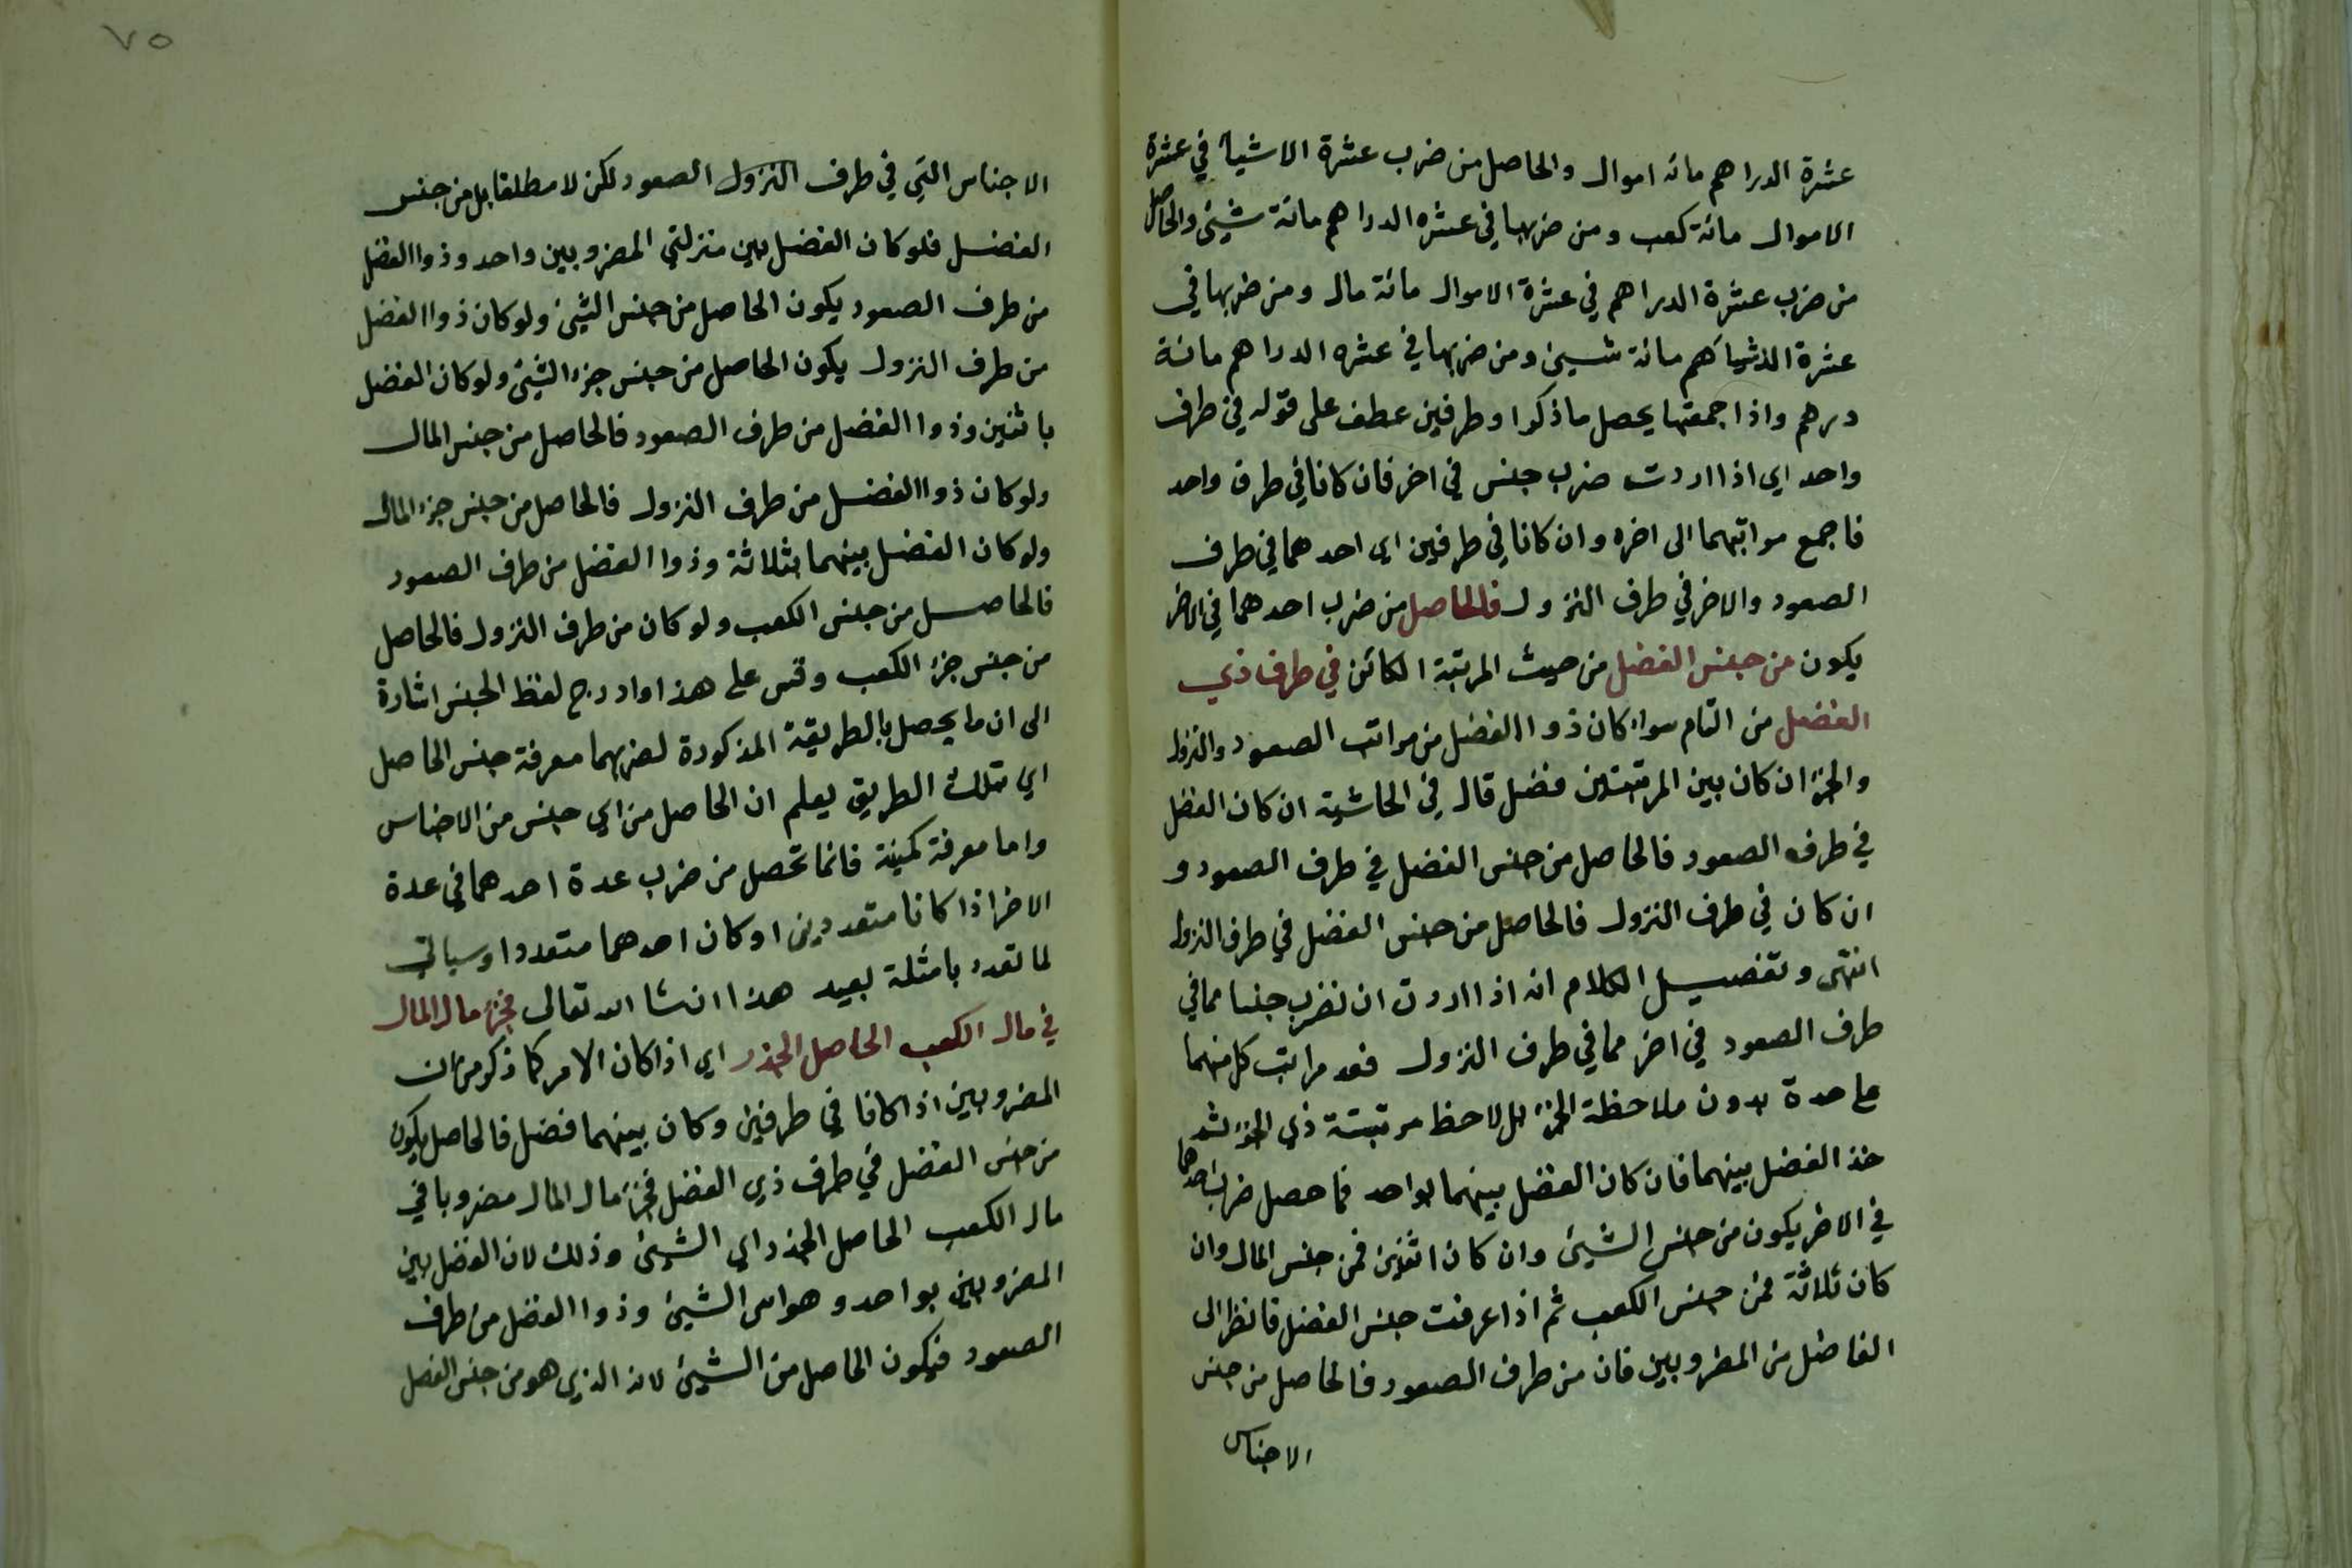 عشرة الدراهم مائة اموال والحاصل من ضرب عشرة الاشياء في عشرة
الاموال مائة كعب ومن ضربها في عشرة الدراهم مائة شيئ والحاصل
من ضرب عشرة الدراهم في عشرة الاموال مائة مال ومن ضربها في
عشرة الاشياء هم مائة شيئ ومن ضربها في عشره الدراهم مائة
درهم واذا جمعتها يحصل ما ذكر او طرفين عطف على قوله في طرف
واحد اي اذا اردت ضرب جنس في اخر فان كانا في طرف واحد
فاجمع مراتبهما الى اخره وان كانا في طرفين اي احدهما في طرف
الصعود والاخر في طرف النزول فالحاصل من ضرب احدهما في الاخر
يكون من جنس الفضل من حيث المرتبة الكائن في طرف ذي
الفضل من التام سواء كان ذو الفضل من مراتب الصعود والنزول
والجزء ان كان بين المرتبتين فضل قال في الحاشية ان كان الفضل
في طرف الصعود فالحاصل من جنس الفضل في طرف الصعود و
ان كان في طرف النزول فالحاصل من جنس الفضل في طرف النزول
انتهى وتفصيل الكلام انه اذا اردت ان تضرب جنسا مما في
طرف الصعود في اخر مما في طرف النزول فعد مراتب كل منهما
علحدة بدون ملاحظة الجزء بل لاحظ مرتبته ذي الجزء ثم
خذ الفضل بينهما فان كان الفضل بينهما بواحد فما حصل ضرب احدهما
في الاخر يكون من جنس الشيئ وان كان اثنين فمن جنس المال وان
كان ثلاثة فمن جنس الكعب ثم اذا عرفت جنس الفضل فانظر الى
الفاضل من المضروبين فان من طرف الصعود فالحاصل من جنس
الاجناس
٧٥
الاجناس التي في طرف النزول الصعود لكن لا مطلقا بل من جنس
الفضل فلو كان الفضل بين منزلتي المضروبين واحد وذوا الفضل
من طرف الصعود يكون الحاصل من جنس الشيئ ولو كان ذوا الفضل
من طرف النزول يكون الحاصل من جنس جزء الشيئ ولو كان الفضل
باثنين وذوا الفضل من طرف الصعود فالحاصل من جنس المال
ولو كان ذوا الفضل من طرف النزول فالحاصل من جنس جزء المال
ولو كان الفضل بينهما بثلاثة وذوا الفضل من طرف الصعود
فالحاصل من جنس الكعب ولو كان من طرف النزول فالحاصل
من جنس جزء الكعب وقس على هذا وادرج لفظ الجنس اشارة
الى ان ما يحصل بالطريقة المذكورة لضربهما معرفة جنس الحاصل
اي بتلك الطريق يعلم ان الحاصل من اي جنس من الاجناس
واما معرفة كمية فانما تحصل من ضرب عدة احدهما في عدة
الاخر اذا كانا متعددين او كان احدهما متعددا وسياتي
لما تعدد بامثلة بعيد هذا انشا الله تعالى فجزء مال المال
في مال الكعب الحاصل الجذر اي اذا كان الامر كما ذكر من ان
المضروبين اذا كانا في طرفين وكان بينهما فضل فالحاصل يكون
من جنس الفضل في طرف ذي الفضل فجزء مال المال مضروبا في
مال الكعب الحاصل الجذر اي الشيئ وذلك لان الفضل بين
المضروبين بواحد وهو اس الشيئ وذوا الفضل من طرف
الصعود فيكون الحاصل من الشيئ لانه الذي هو من جنس الفضل